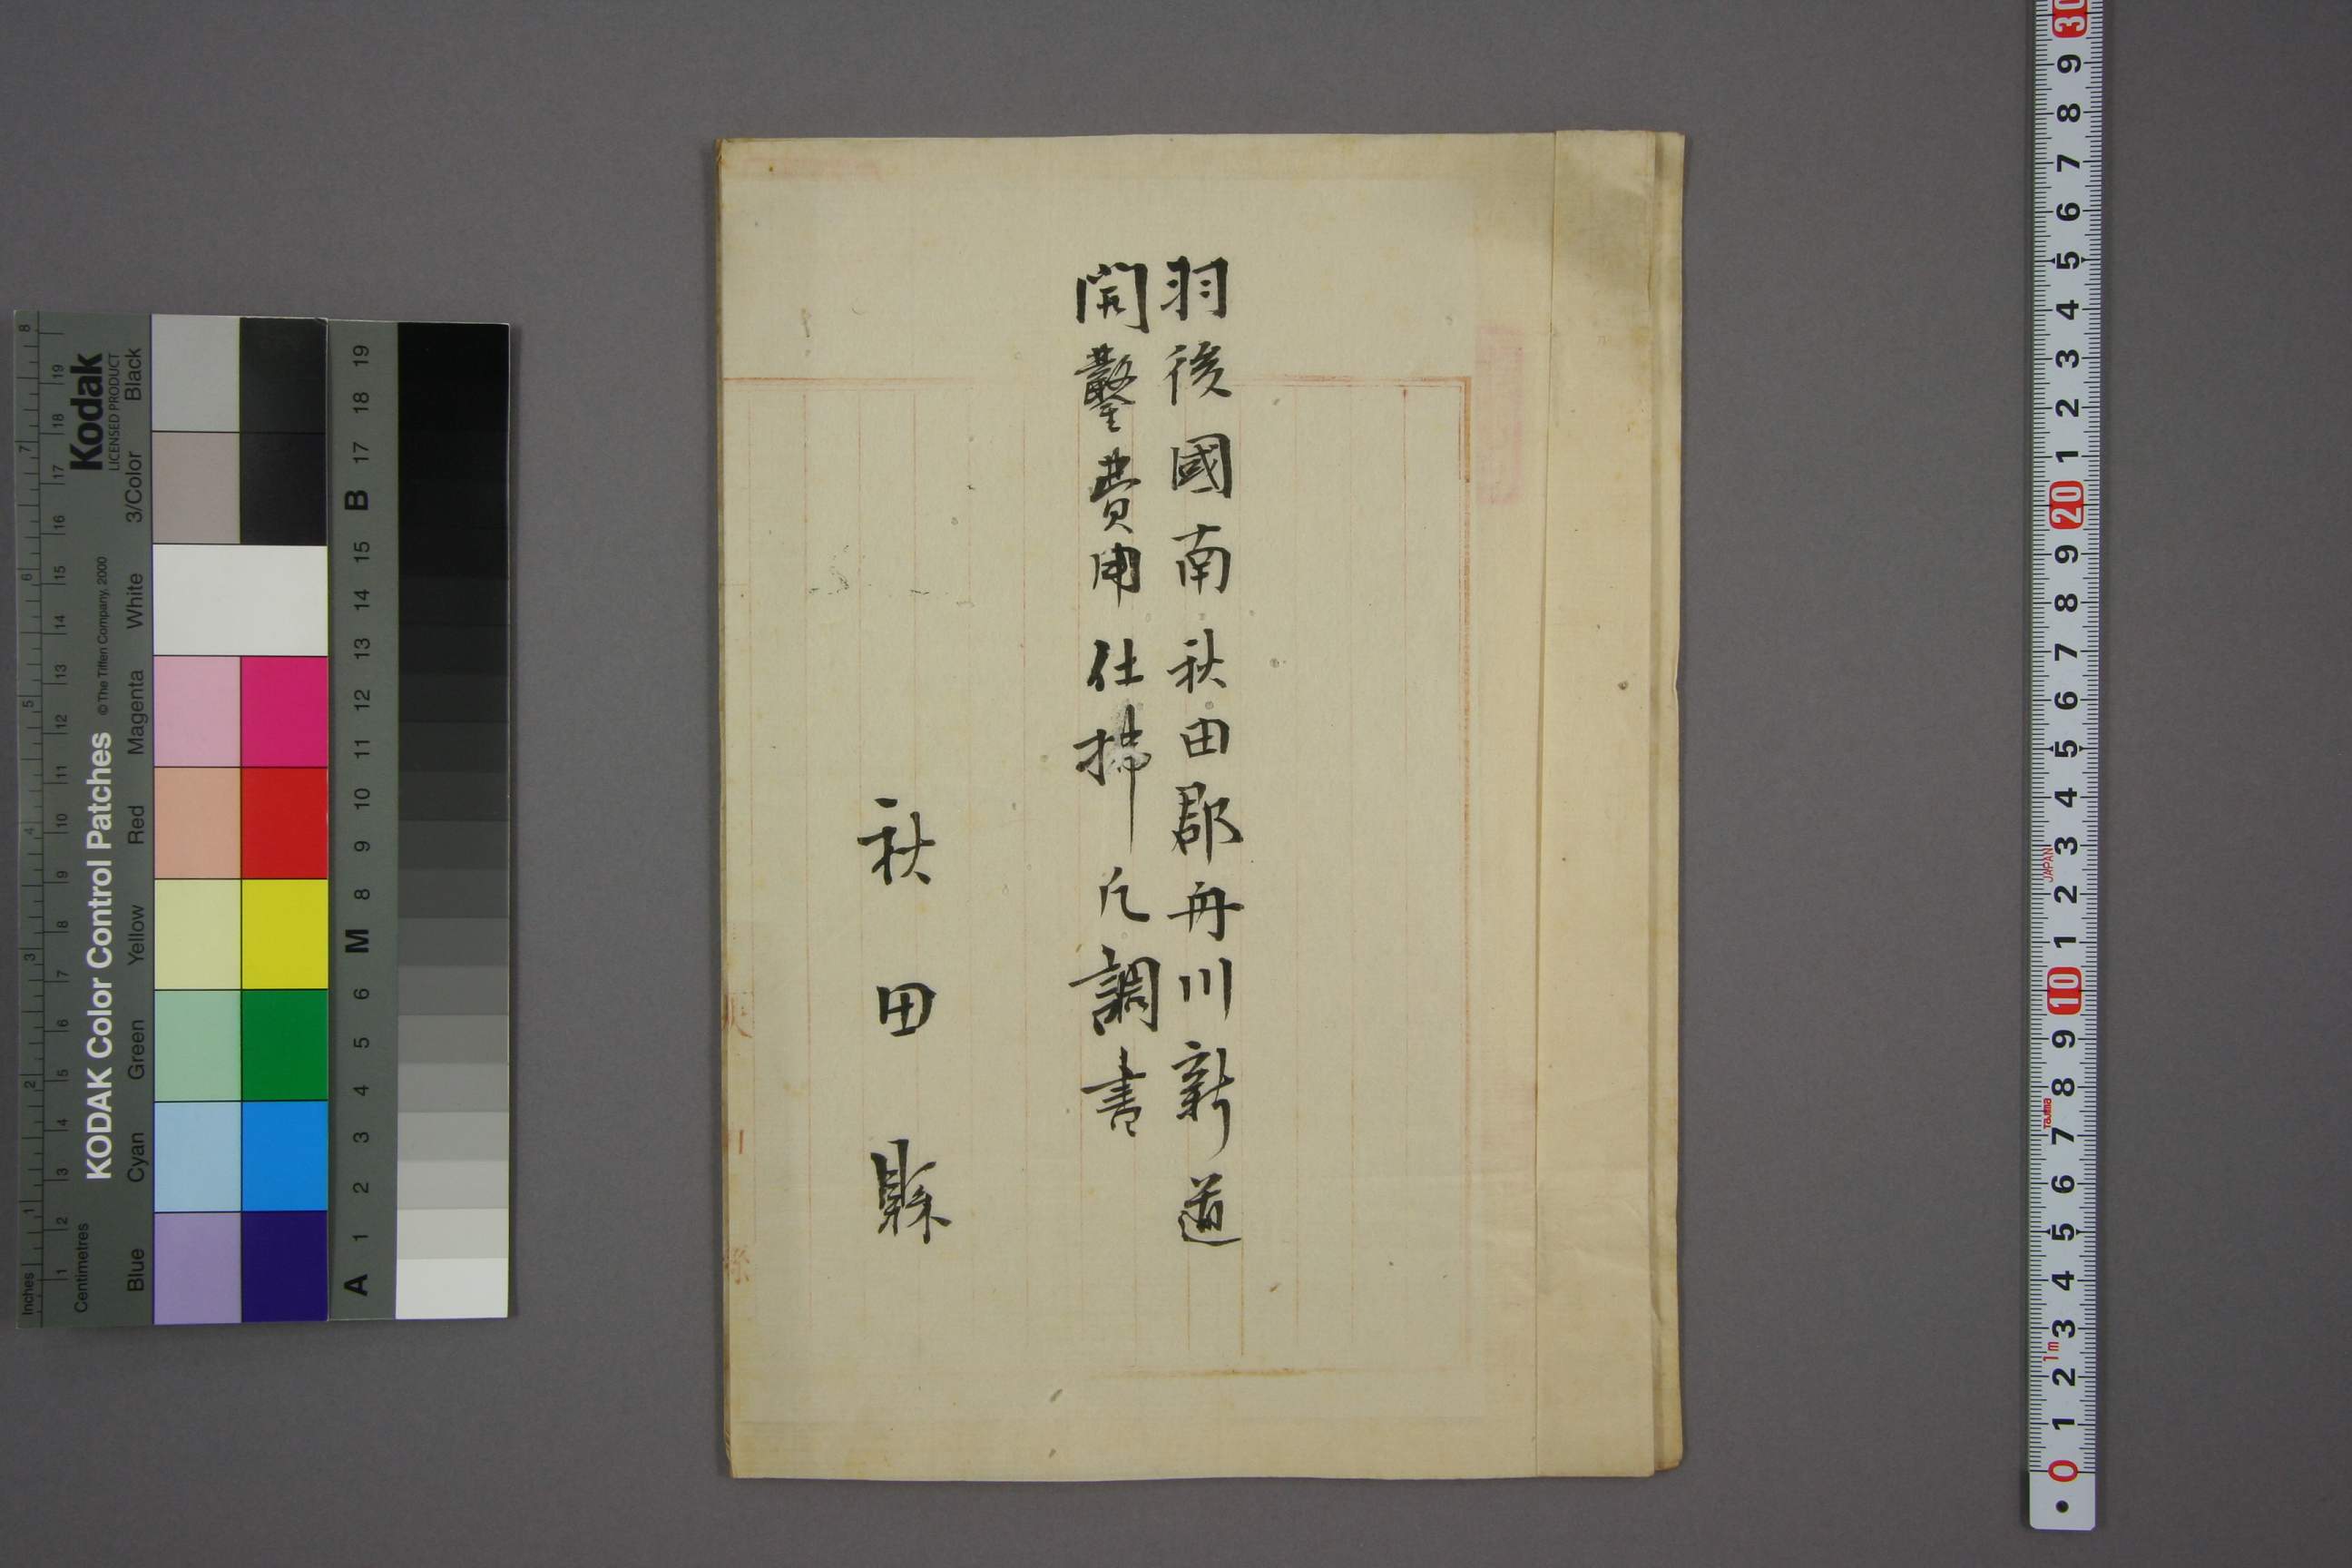 羽後國南秋田郡舟川新道
開鑿費用仕拂凡調書
秋田縣
Kodak
LICENSED PRODUCT
KODAK Color Control Patches
© The Tiffen Company, 2000
Blue Cyan Green Yellow Red Magenta White 3/Color Black
Inches 1 2 3 4 5 6 7 8
Centimetres 1 2 3 4 5 6 7 8 9 10 11 12 13 14 15 16 17 18 19
A 1 2 3 4 5 6 M 8 9 10 11 12 13 14 15 B 17 18 19
0 1 2 3 4 5 6 7 8 9 10 1 2 3 4 5 6 7 8 9 20 1 2 3 4 5 6 7 8 9 30
1m
Tajima
JAPAN